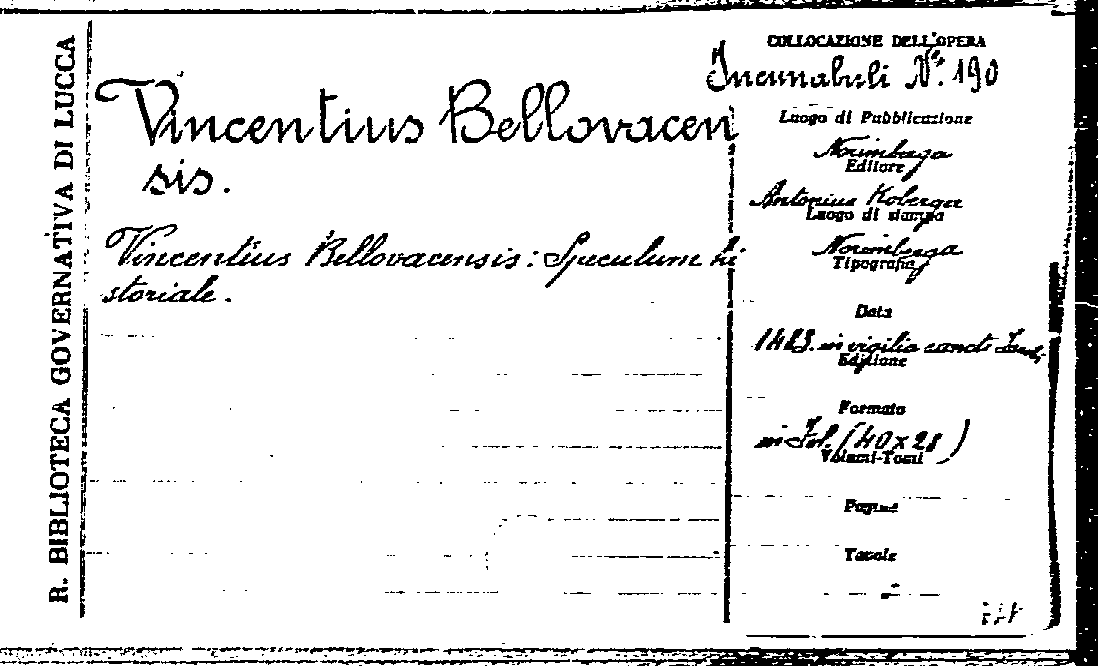 R. BIBLIOTECA GOVERNATIVA DI LUCCA
Vincentius Bellovacen
sis.
Vincentius Bellovacensis: Speculum hi
storiale.
COLLOCAZIONE DELL'OPERA
Incunabuli N°. 190
Luogo di Pubblicazione
Norimbega
Editore
Antonius Koberger
Luogo di stampa
Norimberga
Tipografia
Data
1483. in vigilia sancti
Edizione
Formato
in Fol. (40 x 28)
Volumi-Tomi
Pagine
Tavole